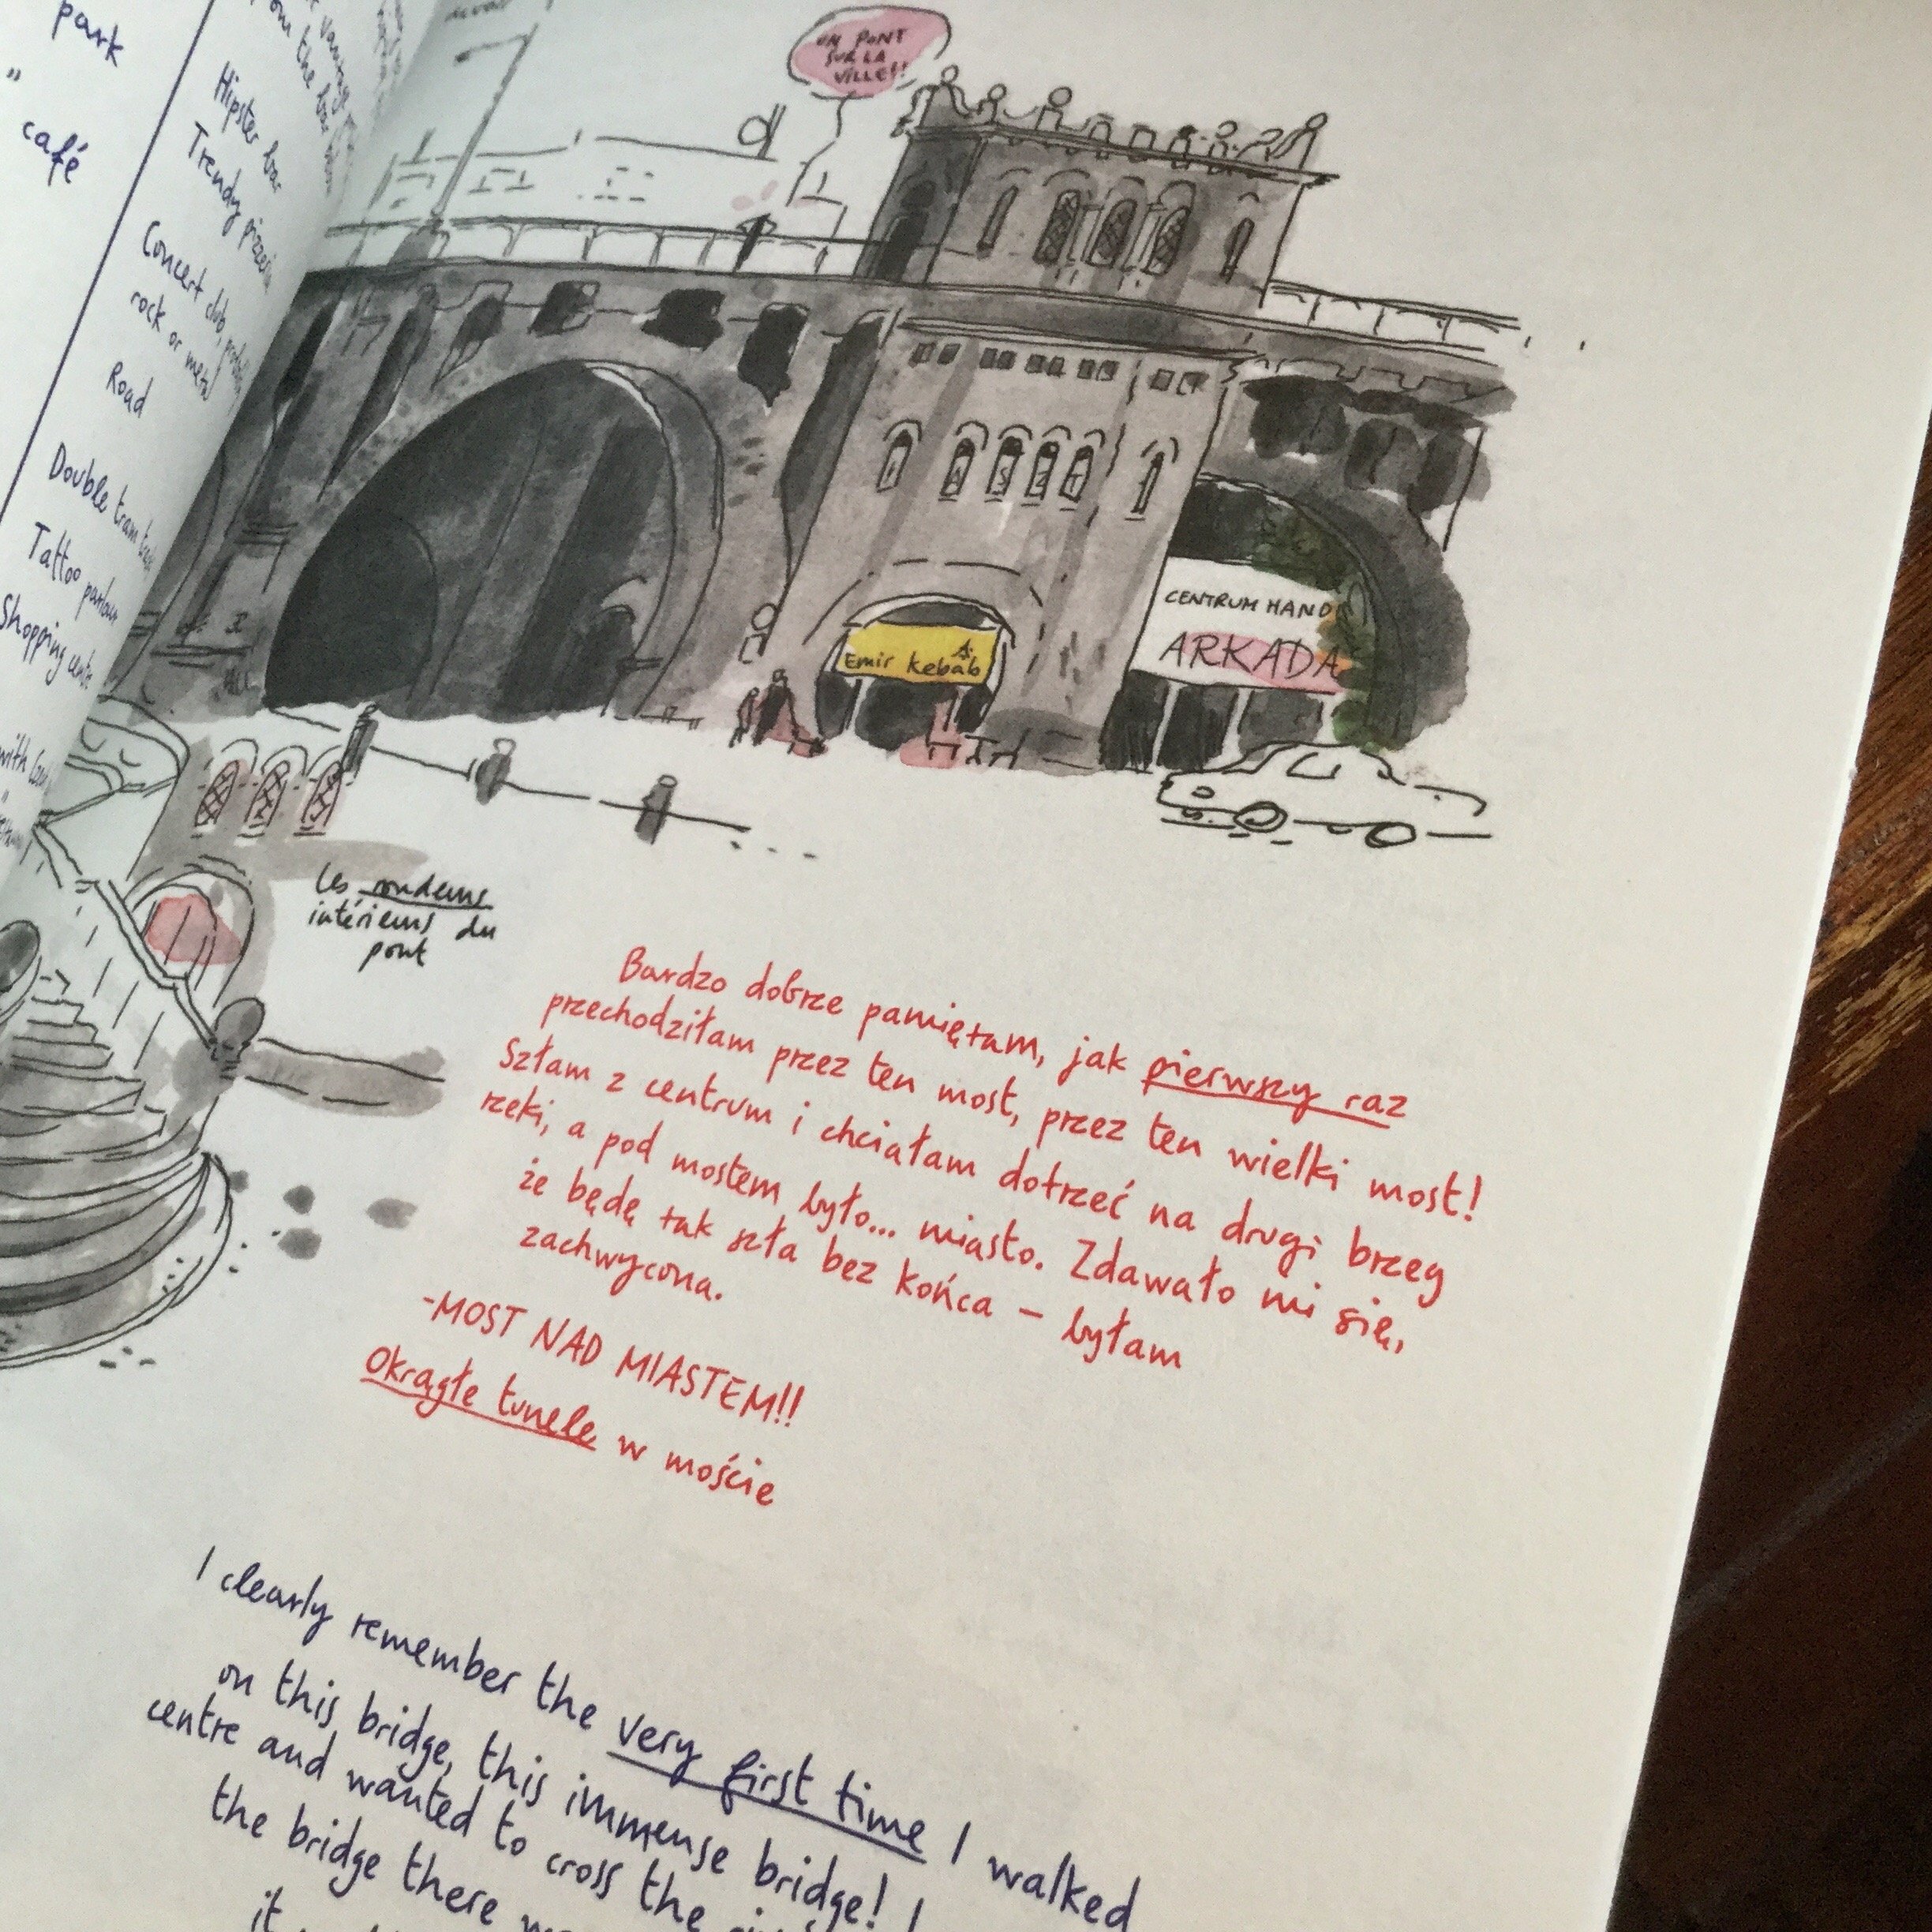 park
"
café
Hipster bar
Trendy pizzeria
Concert club,
rock or metal
Road
Double tram
Tattoo parlour
Shopping centre
UN PONT
SUR LA
VILLE!!
Emir kebab
CENTRUM HAND
ARKADA
Les rondeurs
intérieurs du
pont
Bardzo dobrze pamiętam, jak pierwszy raz
przechodziłam przez ten most, przez ten wielki most!
Szłam z centrum i chciałam dotrzeć na drugi brzeg
rzeki, a pod mostem było... miasto. Zdawało mi się,
że będę tak szła bez końca – byłam
zachwycona.
-MOST NAD MIASTEM!!
Okrągłe tunele w moście
I clearly remember the very first time I walked
on this bridge, this immense bridge! I
centre and wanted to cross the
the bridge there
it